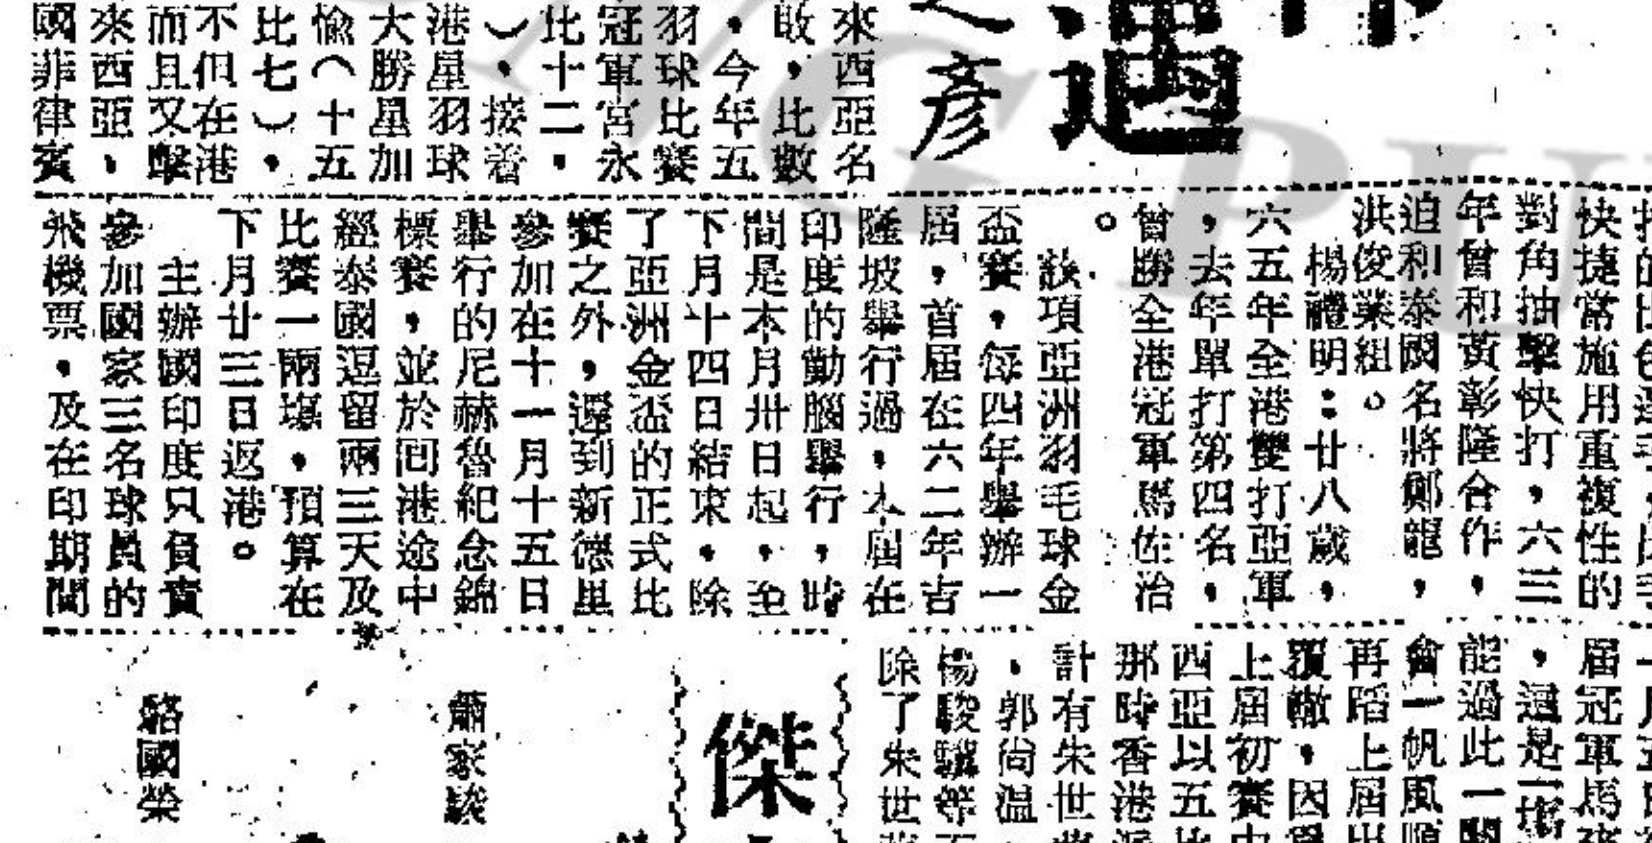 遇
之彥
來西亞名
敗，比數
，今年五
羽球比賽
冠軍宮永
比十二，
），接着
港星羽球
大勝星加
愉（十五
比七），
不但在港
而且又擊
來西亞，
國菲律賓
快捷常施用重複性的
對角抽擊快打，六三
年曾和黃彰隆合作，
迫和泰國名將鄭龍，
洪俊業組。
楊禮明：廿八歲，
六五年全港雙打亞軍
，去年單打第四名，
曾勝全港冠軍馬佐治
。
該項亞洲羽毛球金
盃賽，每四年舉辦一
屆，首屆在六二年吉
隆坡舉行過，本屆在
印度的勤腦舉行，時
間是本月卅日起，至
下月十四日結束，除
了亞洲金盃的正式比
賽之外，還到新德里
參加在十一月十五日
舉行的尼赫魯紀念錦
標賽，並於囘港途中
經泰國逗留兩三天及
比賽一兩塲，預算在
下月廿三日返港。
主辦國印度只負責
參加國家三名球員的
飛機票，及在印期間
屆冠軍馬
，這是一塲
能過此一關
會一帆風順
再蹈上屆
覆轍，因
上屆初賽
西亞以五比
那時香港派
計有朱世
，郭尚溫
楊駿驥等
除了朱世
傑
蕭家駿
駱國榮